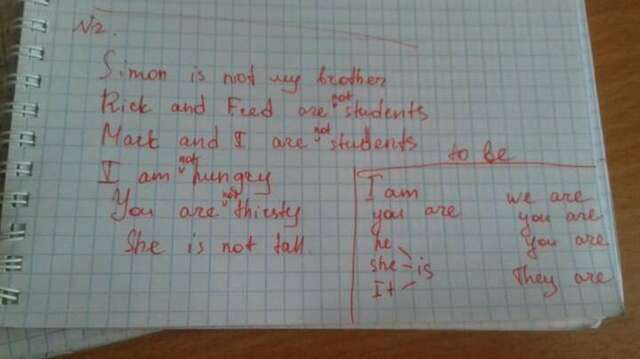 N2.
Simon is not my brother
Rick and Fred are not students
Mark and I are not students
I am not hungry
You are not thirsty
She is not tall.
to be
I am we are
you are you are
he you are
she is
It They are